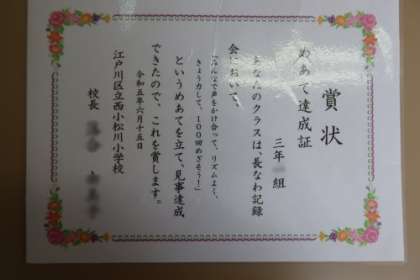 賞状
めあて達成証
三年 組
あなたのクラスは長なわ記録
会において、
「みんなで声をかけ合って、リズムよく、
きょう力して、100回めざそう!」
というめあてを立て、見事達成
できたので、これを賞します。
令和五年六月十五日
江戸川区立西小松川小学校
校長